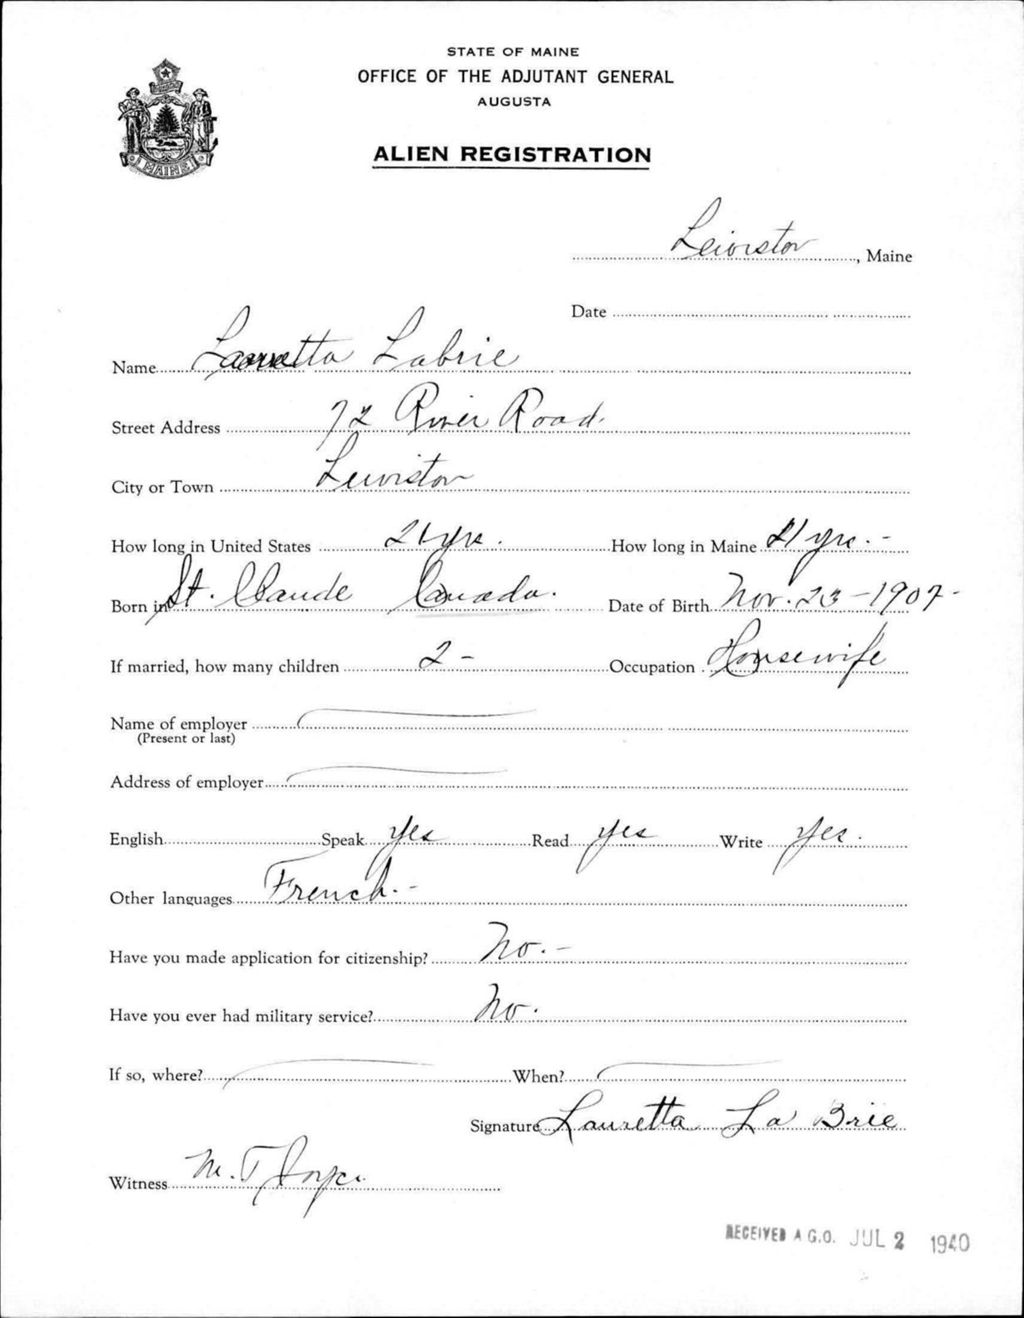 STATE OF MAINE
OFFICE OF THE ADJUTANT GENERAL
AUGUSTA
ALIEN REGISTRATION
MAINE
Lewiston, Maine
Date
Name Lauretta Labrie
Street Address 72 River Road.
City or Town Lewiston
How long in United States 21 yrs. How long in Maine 21 yrs. -
Born in St. Claude Canada. Date of Birth Nov. 23 - 1907 -
If married, how many children 2 - Occupation Housewife
Name of employer
(Present or last)
Address of employer
English Speak yes Read yes Write yes.
Other languages French. -
Have you made application for citizenship? No. -
Have you ever had military service? No.
If so, where? When?
Signature Lauretta La Brie
Witness M. T. Joyce
RECEIVED A.G.O. JUL 2 1940